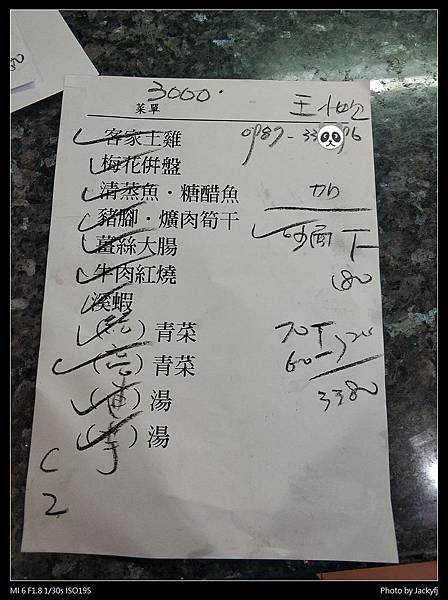 3000.
菜單
王
0987-33 96
客家土雞
梅花併盤
清蒸魚・糖醋魚
加
豬腳・爌肉筍干
炒面下
薑絲大腸
牛肉紅燒
180
溪蝦
( ) 青菜
70下
( ) 青菜
60
3380
( ) 湯
( ) 湯
C
2
MI 6 F1.8 1/30s ISO195
Photo by Jackyfj